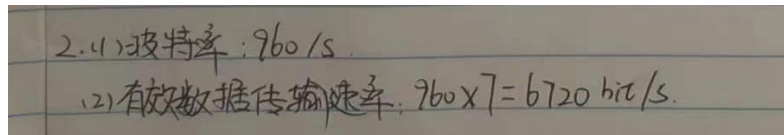 2.(1)波特率:960/s.
(2)有效数据传输速率:960×7=6720 bit/s.